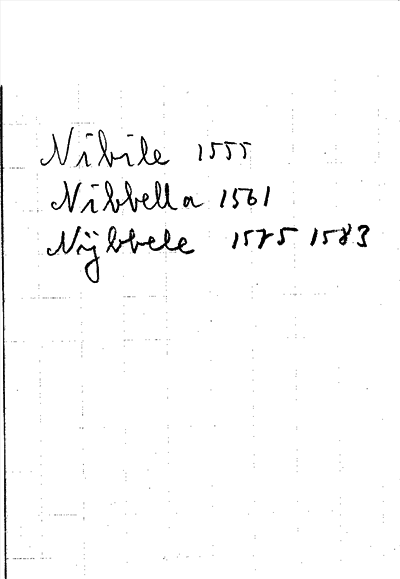 Nibile 1555
Nibbella 1561
Nÿbbele 1575 1583